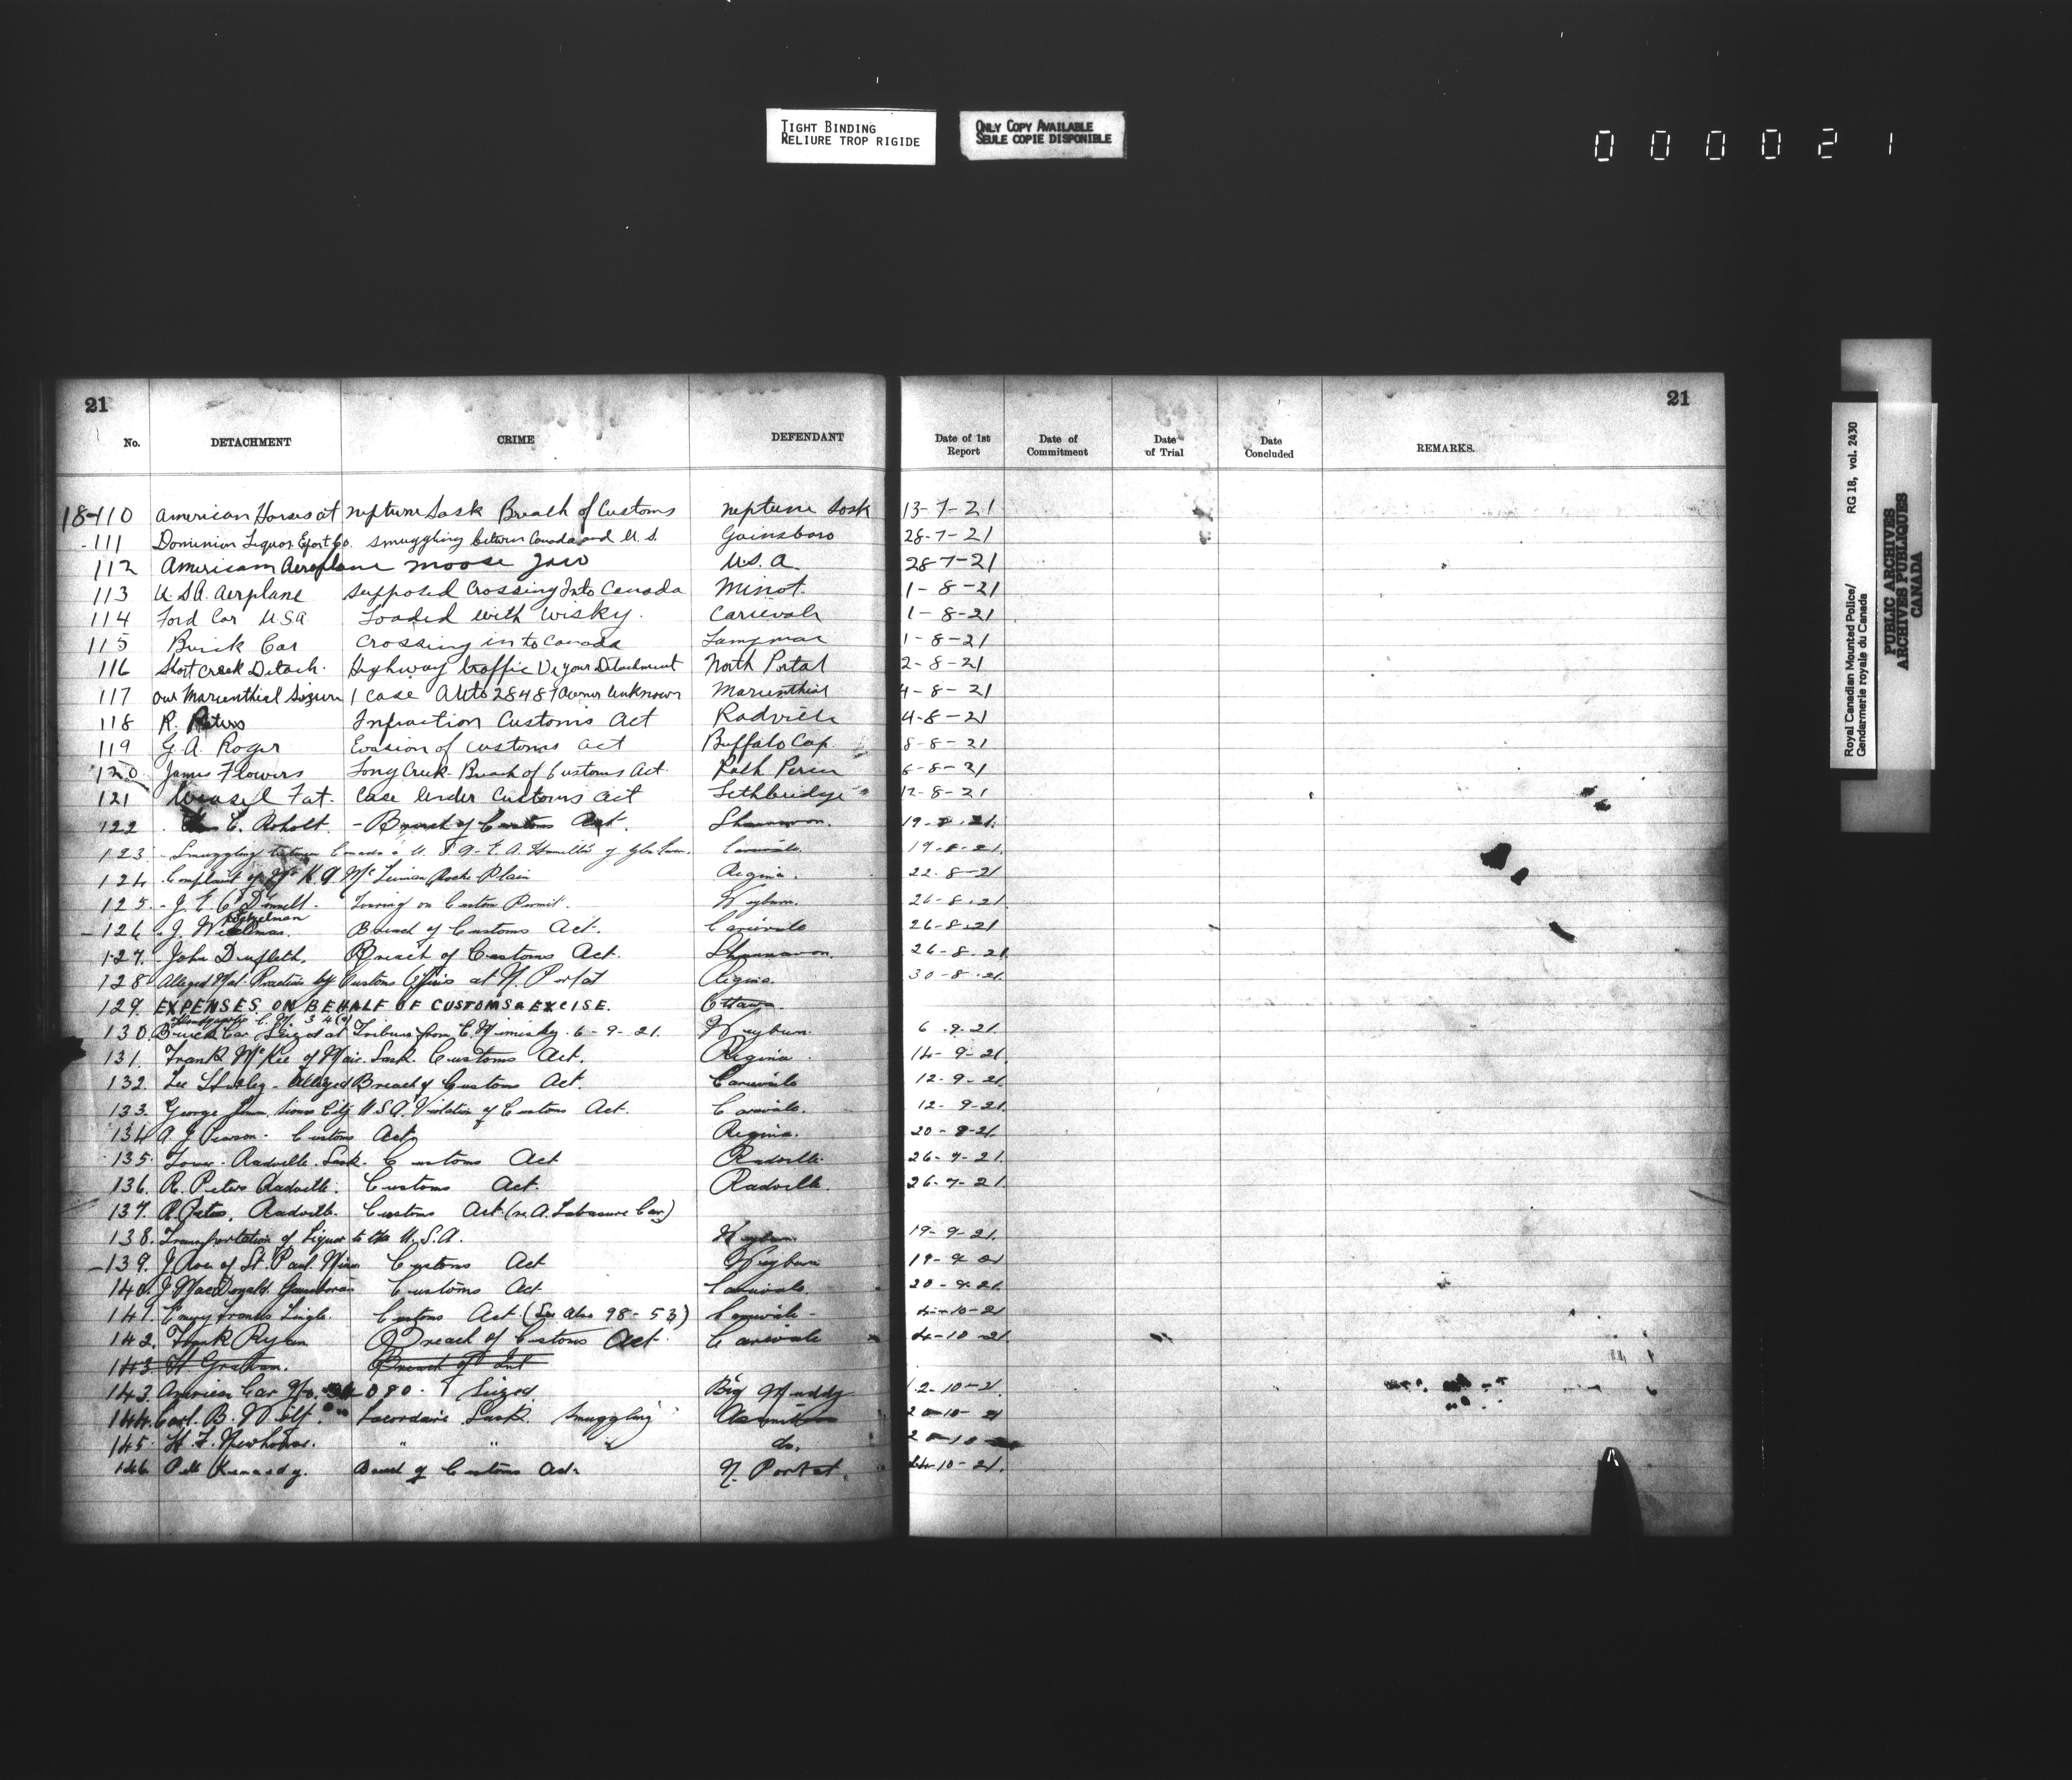 TIGHT BINDING
RELIURE TROP RIGIDE
ONLY COPY AVAILABLE
SEULE COPIE DISPONIBLE
0 0 0 0 2 1
21 21
No. DETACHMENT CRIME DEFENDANT Date of 1st Report Date of Commitment Date of Trial Date Concluded REMARKS.
18-110 American Horses at Neptune Sask Breach of Customs Neptune Sask 13-7-21
-111 Dominion Liquor Export Co. Smuggling between Canada and U.S. Gainsboro 28-7-21
112 American Aeroplane Moose Jaw U.S.A. 28-7-21
113 U.S.A. Aerplane Supposed Crossing Into Canada Minot. 1-8-21
114 Ford Car U.S.A. Loaded with Wisky. Carievale 1-8-21
115 Buick Car Crossing into Canada 1-8-21
116 Short Creek Detach. Highway traffic Detachment North Portal 2-8-21
117 our Marienthal 1 case Auto 28487 Owner Unknown Marienthal 4-8-21
118 R. Peters Infraction Customs Act Radville 4-8-21
119 G.A. Roger Evasion of customs act Buffalo Cap 8-8-21
120 James Flowers Long Creek Breach of Customs Act. 6-8-21
121 Weasel Fat. Case Under Customs Act Lethbridge 12-8-21
122 C. Roholt. - Breach of Customs Act. Shaunavon. 19-8-21.
123. Smuggling between Canada & U.S.A. E.A. of Carievale 19-8-21.
124 Complaint of Plain Regina. 22-8-21
125. J. E. Touring on Custom Permit. Weyburn. 26-8-21.
-126 J. Breach of Customs Act. Carievale 26-8-21
127. John Breach of Customs Act. Shaunavon. 26-8-21.
128 Alleged Mal-Practice by Customs Officers at N. Portal Regina. 30-8-21.
129. EXPENSES ON BEHALF OF CUSTOMS & EXCISE. Ottawa
130 Buick Car Seized at Tribune from 6-9-21. Weyburn 6-9-21.
131. Frank McKee of Sask. Customs Act. Regina 14-9-21
132. Lee Alleged Breach of Customs Act. Carievale 12-9-21.
133. George Sioux City U.S.A. Violation of Customs Act. Carievale. 12-9-21.
134 A. J. Pearson. Customs Act, Regina. 20-9-21.
135. Radville. Sask. Customs Act Radville. 26-9-21.
136. R. Peters Radville. Customs Act. Radville. 26-9-21.
137. R. Peters, Radville. Customs Act. (re. A. Labasure Car)
138. Transportation of Liquor to the U.S.A. Weyburn 19-9-21.
-139. J. of St. Paul. Minn Customs Act Weyburn 19-9-21
140. J. MacDonald. Customs Act Carievale. 20-9-21.
141. Customs Act. (See also 98-53) Carievale - 4-10-21
142. Frank Breach of Customs Act. Carievale 4-10-21.
143 H Graham. Breach of Int
143. American Car No. 080. Seized Big Muddy 12-10-21.
144. Carl. B. Wolf. Sask. Smuggling 10-21
145. H. F. Newhouse. " " do. 10
146. Kennedy. Breach of Customs Act. N. Portal. 24-10-21.
Royal Canadian Mounted Police/
Gendarmerie royale du Canada
RG 18, vol. 2430
PUBLIC ARCHIVES
ARCHIVES PUBLIQUES
CANADA